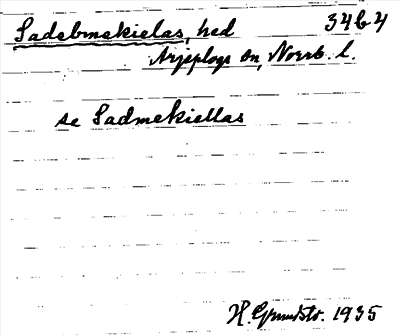 Sadebmekielas, hed 34 b 4
Arjeplogs sn, Norrb. l.
se Sadmekiellas
H. Grundstr. 1935